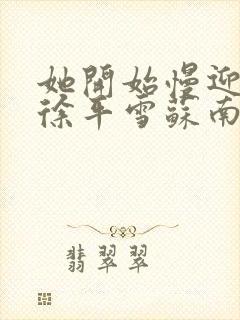 她開始慢迎
徐平雪蘇南
翡翠翠